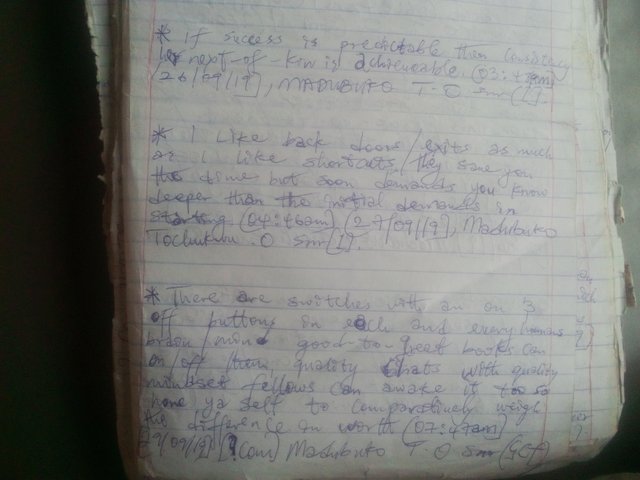 * If success is predictable then consistency
her next-of-kin is achieveable. (03:
26/09/19], MADUBUKO T.O snr[1].
* I like back doors/exits as much
as I like shortcuts, they save you
the time but soon demands you know
deeper than the initial demands in
starting (04:46am) (27/09/19], Madubuko
Tochukwu .O snr[1].
* There are switches with an on &
off buttons in each and every humans
brain/mind good-to-great books can
on/off them, quality chats with quality
mindset fellows can awake it too so
hone ya self to comparatively weigh
the difference in worth (07:47am)
29/09/19] [?.com] Madubuko T.O snr